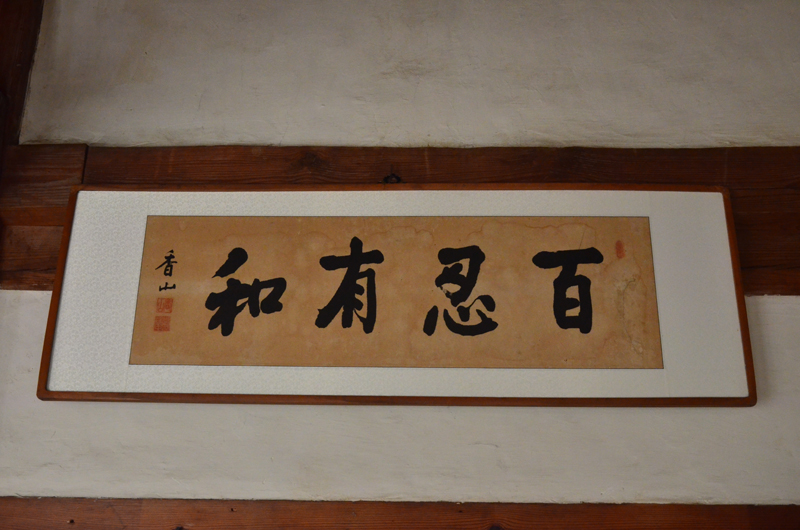 百忍有和
香山